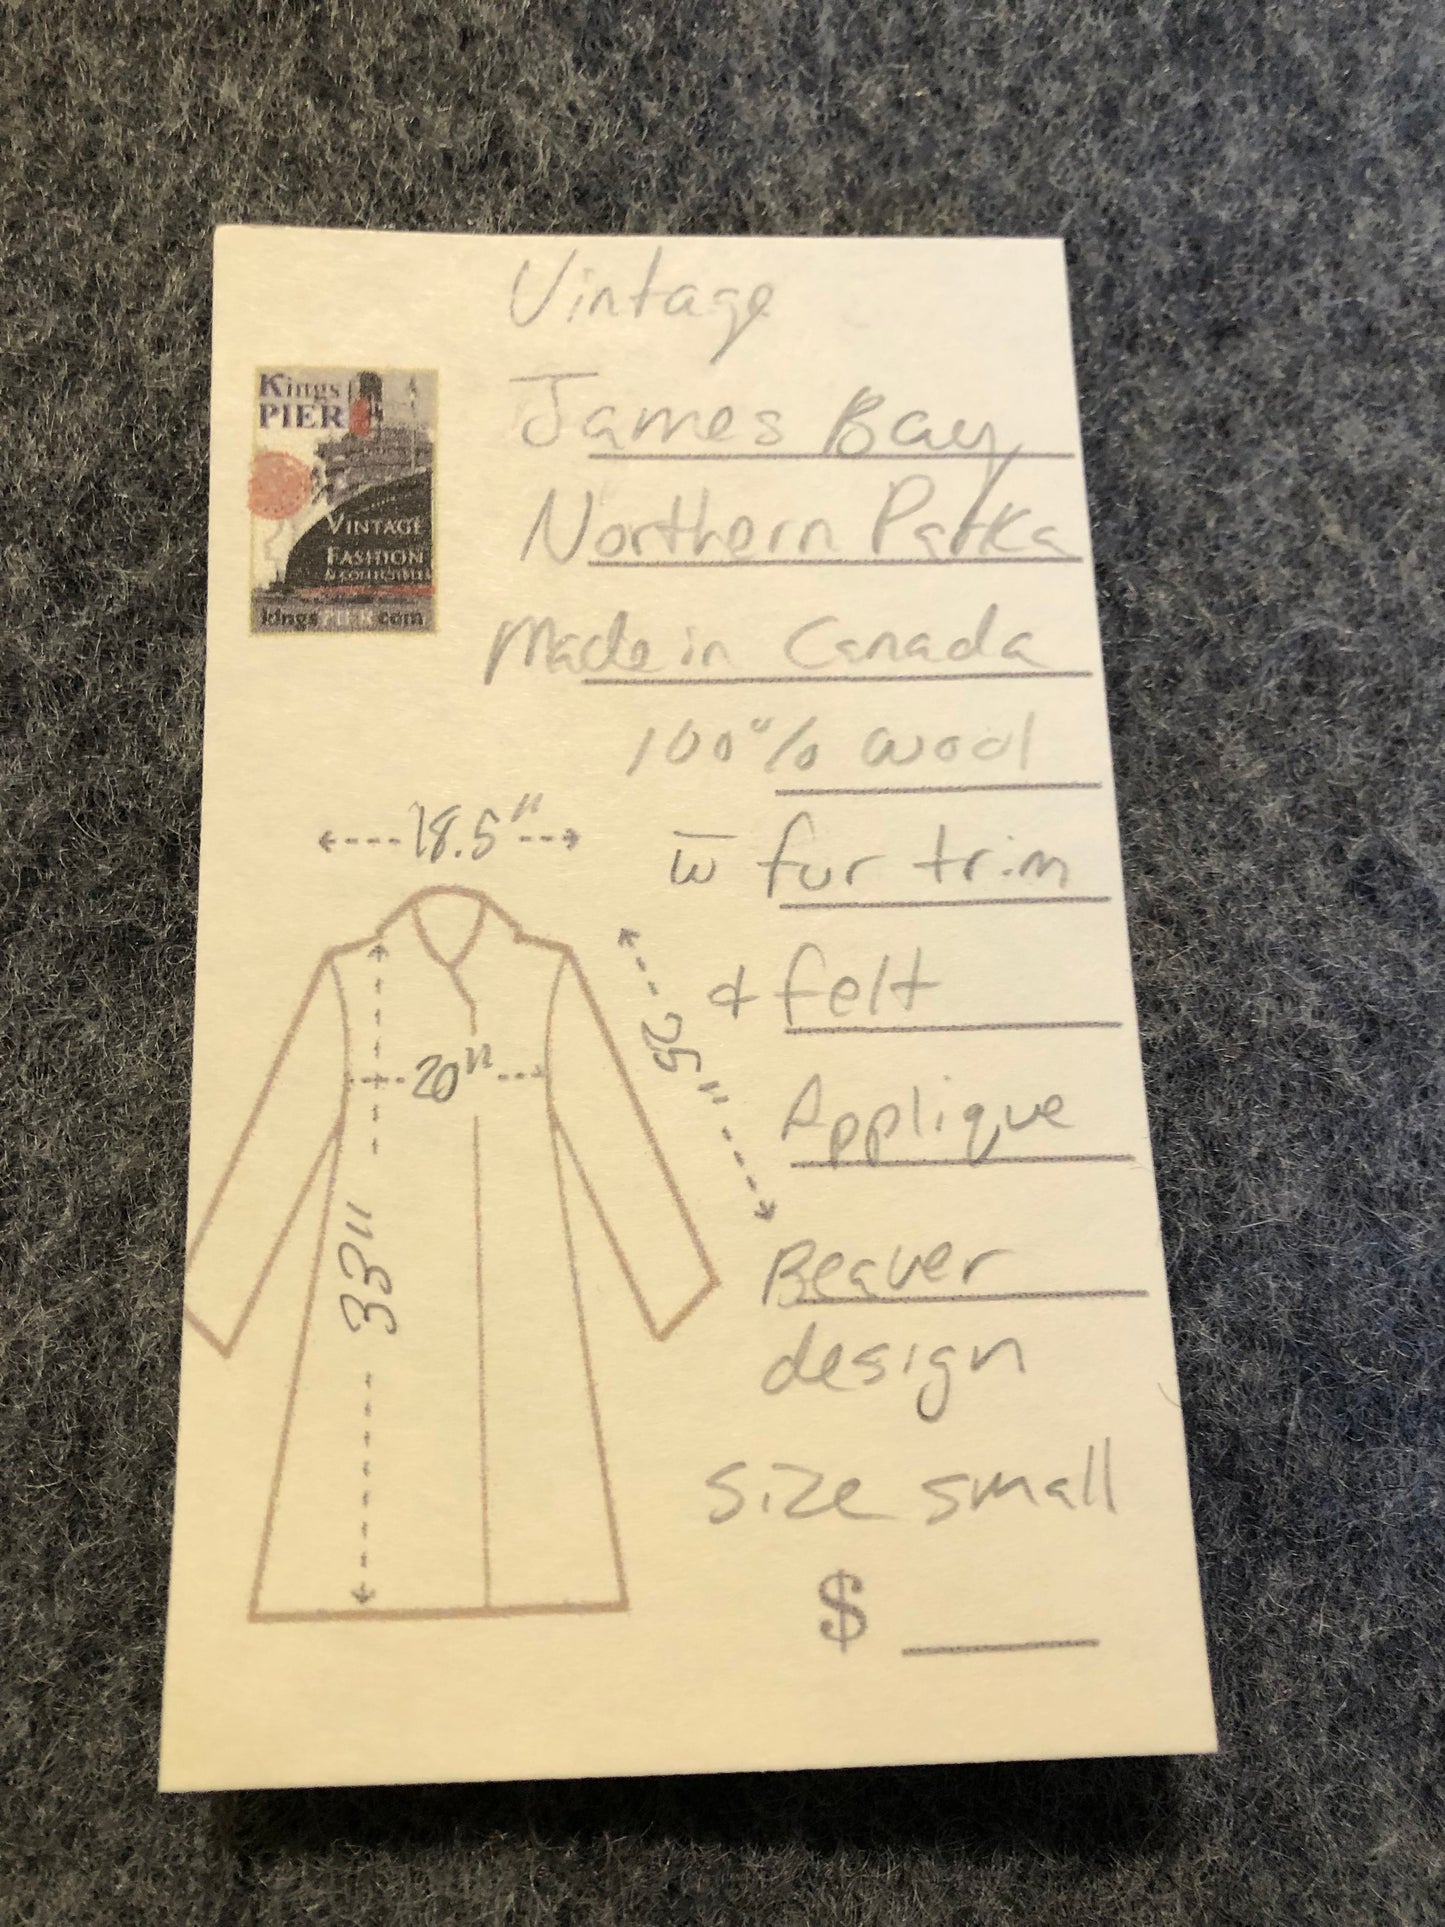 Vintage
Kings
PIER
VINTAGE
FASHION
& COLLECTIBLES
kingsPIER.com
James Bay
Northern Parka
Made in Canada
100% wool
w̅ fur trim
& felt
Applique
Beaver
design
size small
$
18.5"
20"
25"
33"